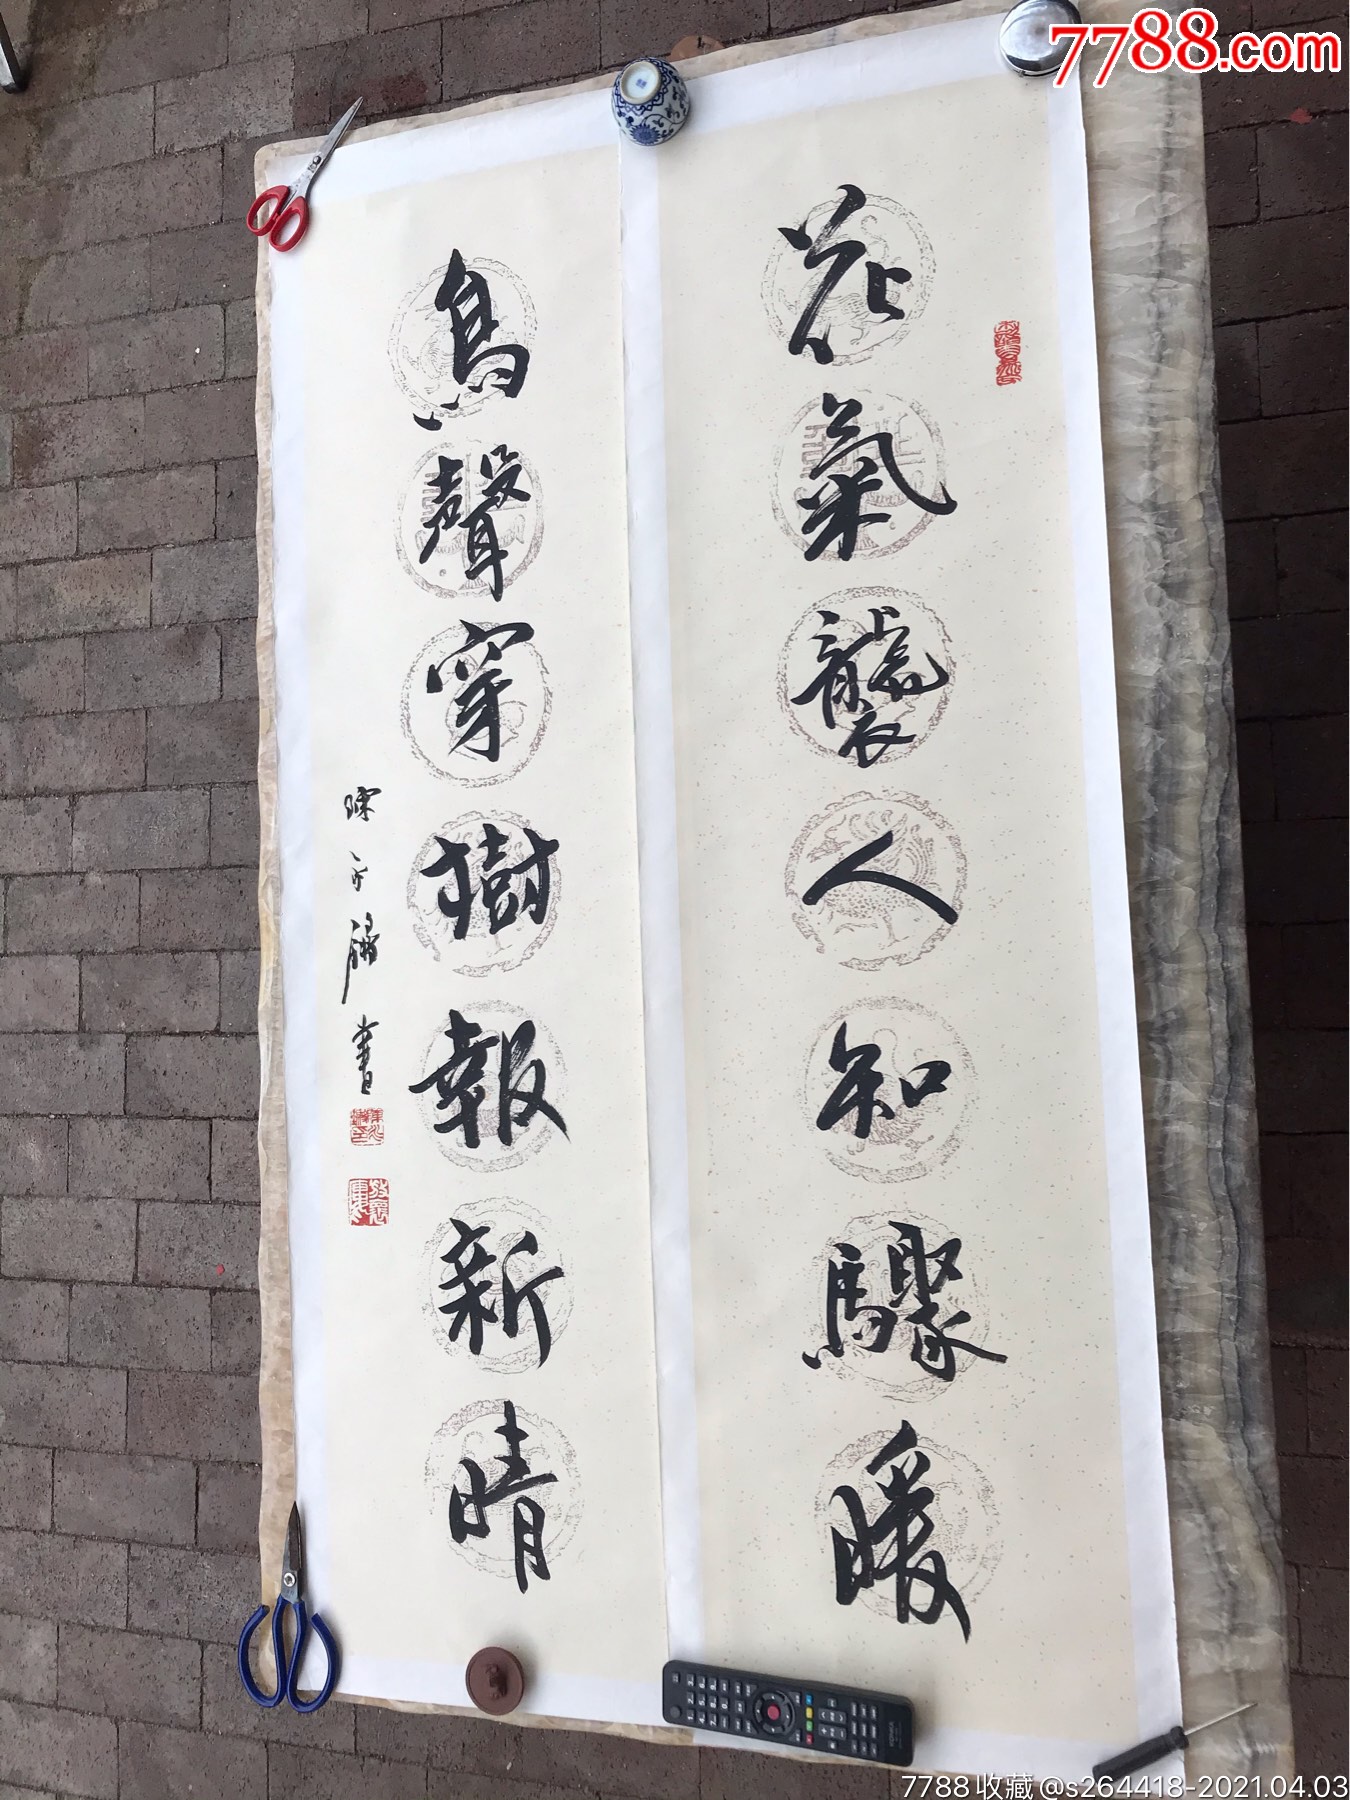 7788.com
花氣襲人知驟暖
鳥聲穿樹報新晴
陳書
7788收藏@s264418-2021.04.03